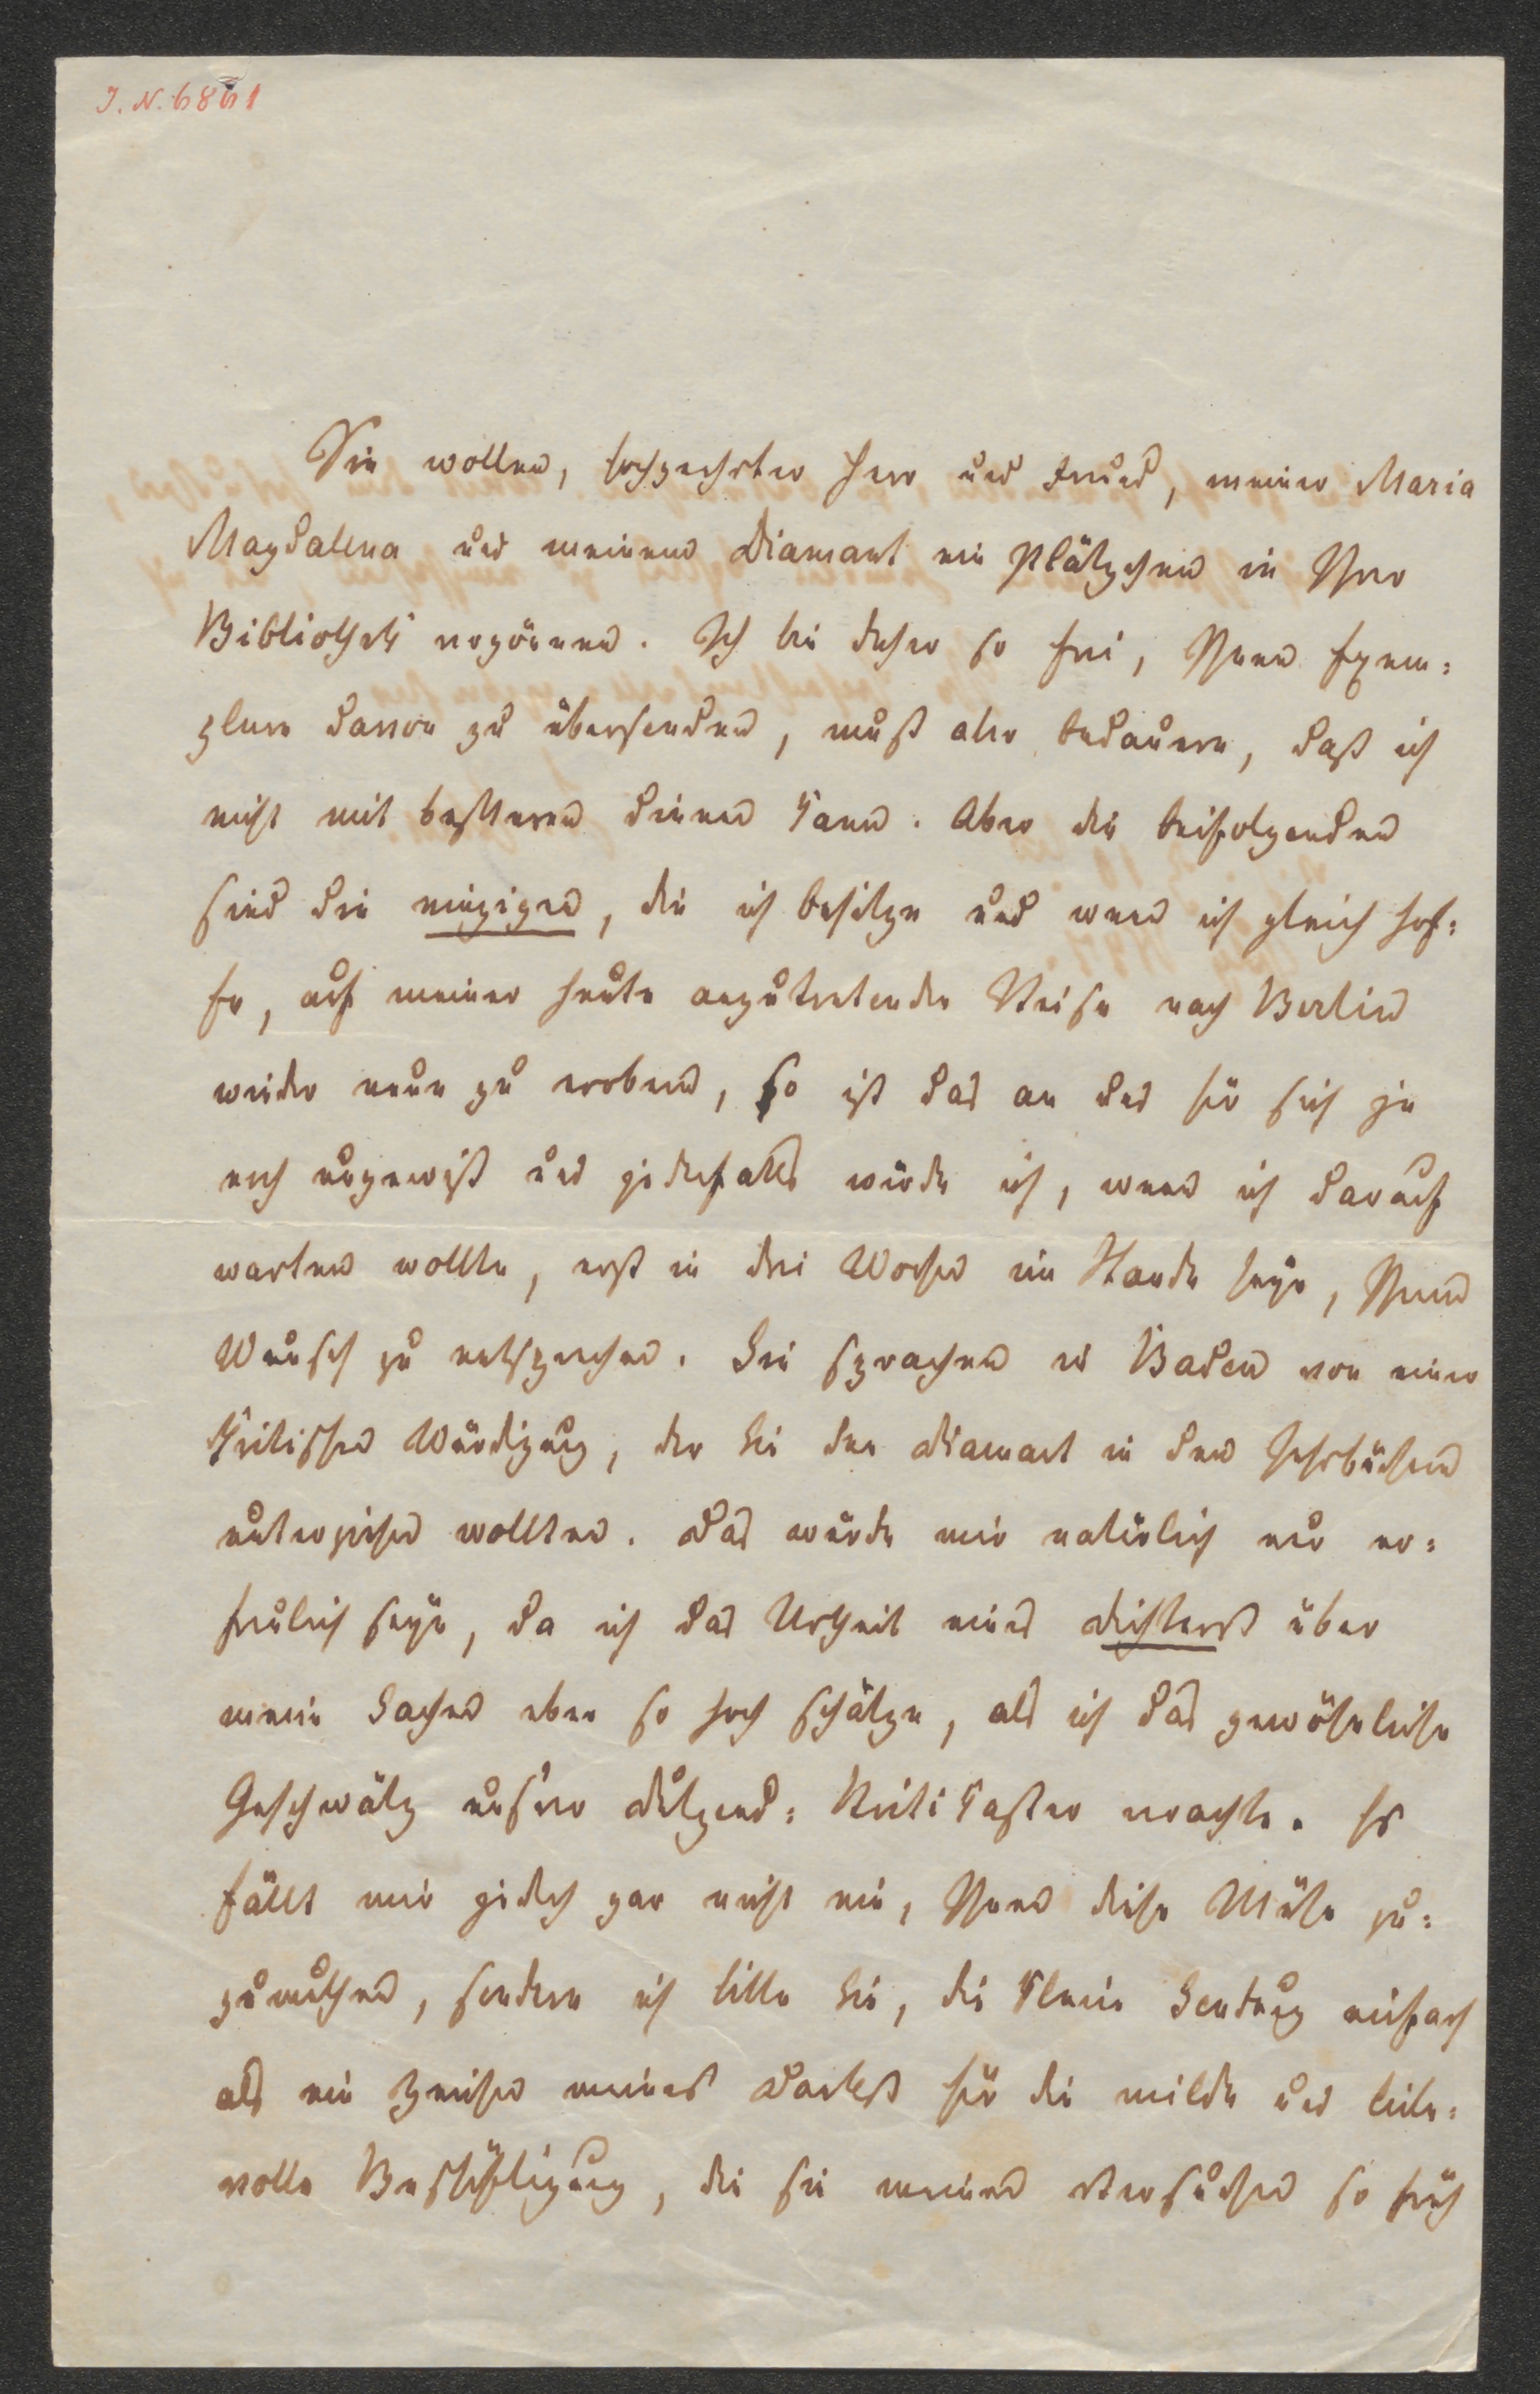 I. N. 6861
Sie wollen, hochgeehrter Herr und Freund, meiner Maria
Magdalena und meinem Diamant ein Plätzchen in Ihrer
Bibliothek vergönnen. Ich bin daher so frei, Ihnen Exem=
plare davon zu übersenden, muß aber bedauern, daß ich
nicht mit besseren dienen kann. Aber die beifolgenden
sind die einzigen, die ich besitze und wenn ich gleich hof=
fe, auf meiner heute anzutretenden Reise nach Berlin
wieder neue zu erobern, so ist das an und für sich ja
noch ungewiß und jedenfalls würde ich, wenn ich darauf
warten wollte, erst in drei Wochen im Stande seyn, Ihrem
Wunsch zu entsprechen. Sie sprachen in Baden von einer
kritischen Würdigung, der Sie den Diamant in den Jahrbüchern
unterziehen wollten. Das würde mir natürlich nur er=
freulich seyn, da ich das Urtheil eines Dichters über
meine Sachen eben so hoch schätze, als ich das gewöhnliche
Geschwätz unsrer Dutzend= Kritikaster verachte. Es
fällt mir jedoch gar nicht ein, Ihnen diese Mühe zu=
zumuthen, sondern ich bitte Sie, die kleine Sendung einfach
als ein Zeichen meines Dankes für die milde und liebe=
volle Beschäftigung, die sie meinen Versuchen so früh